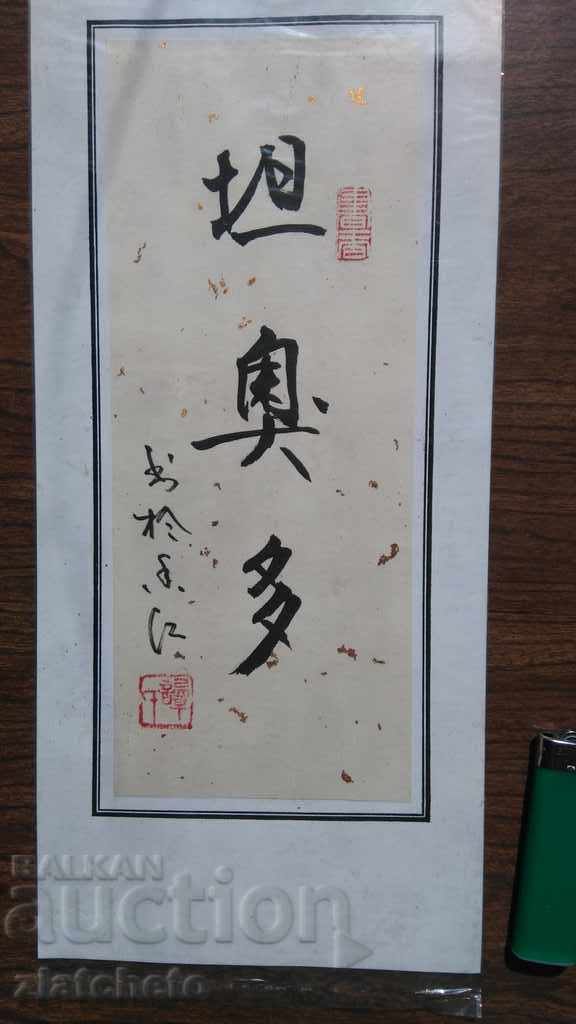 坦奥多
書香
书於香江
BALKAN
auction
zlatcheto